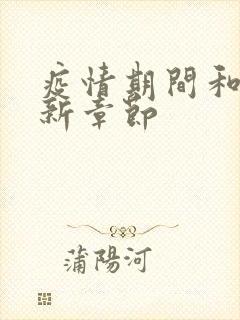 疫情期間和
新章節
蒲陽河